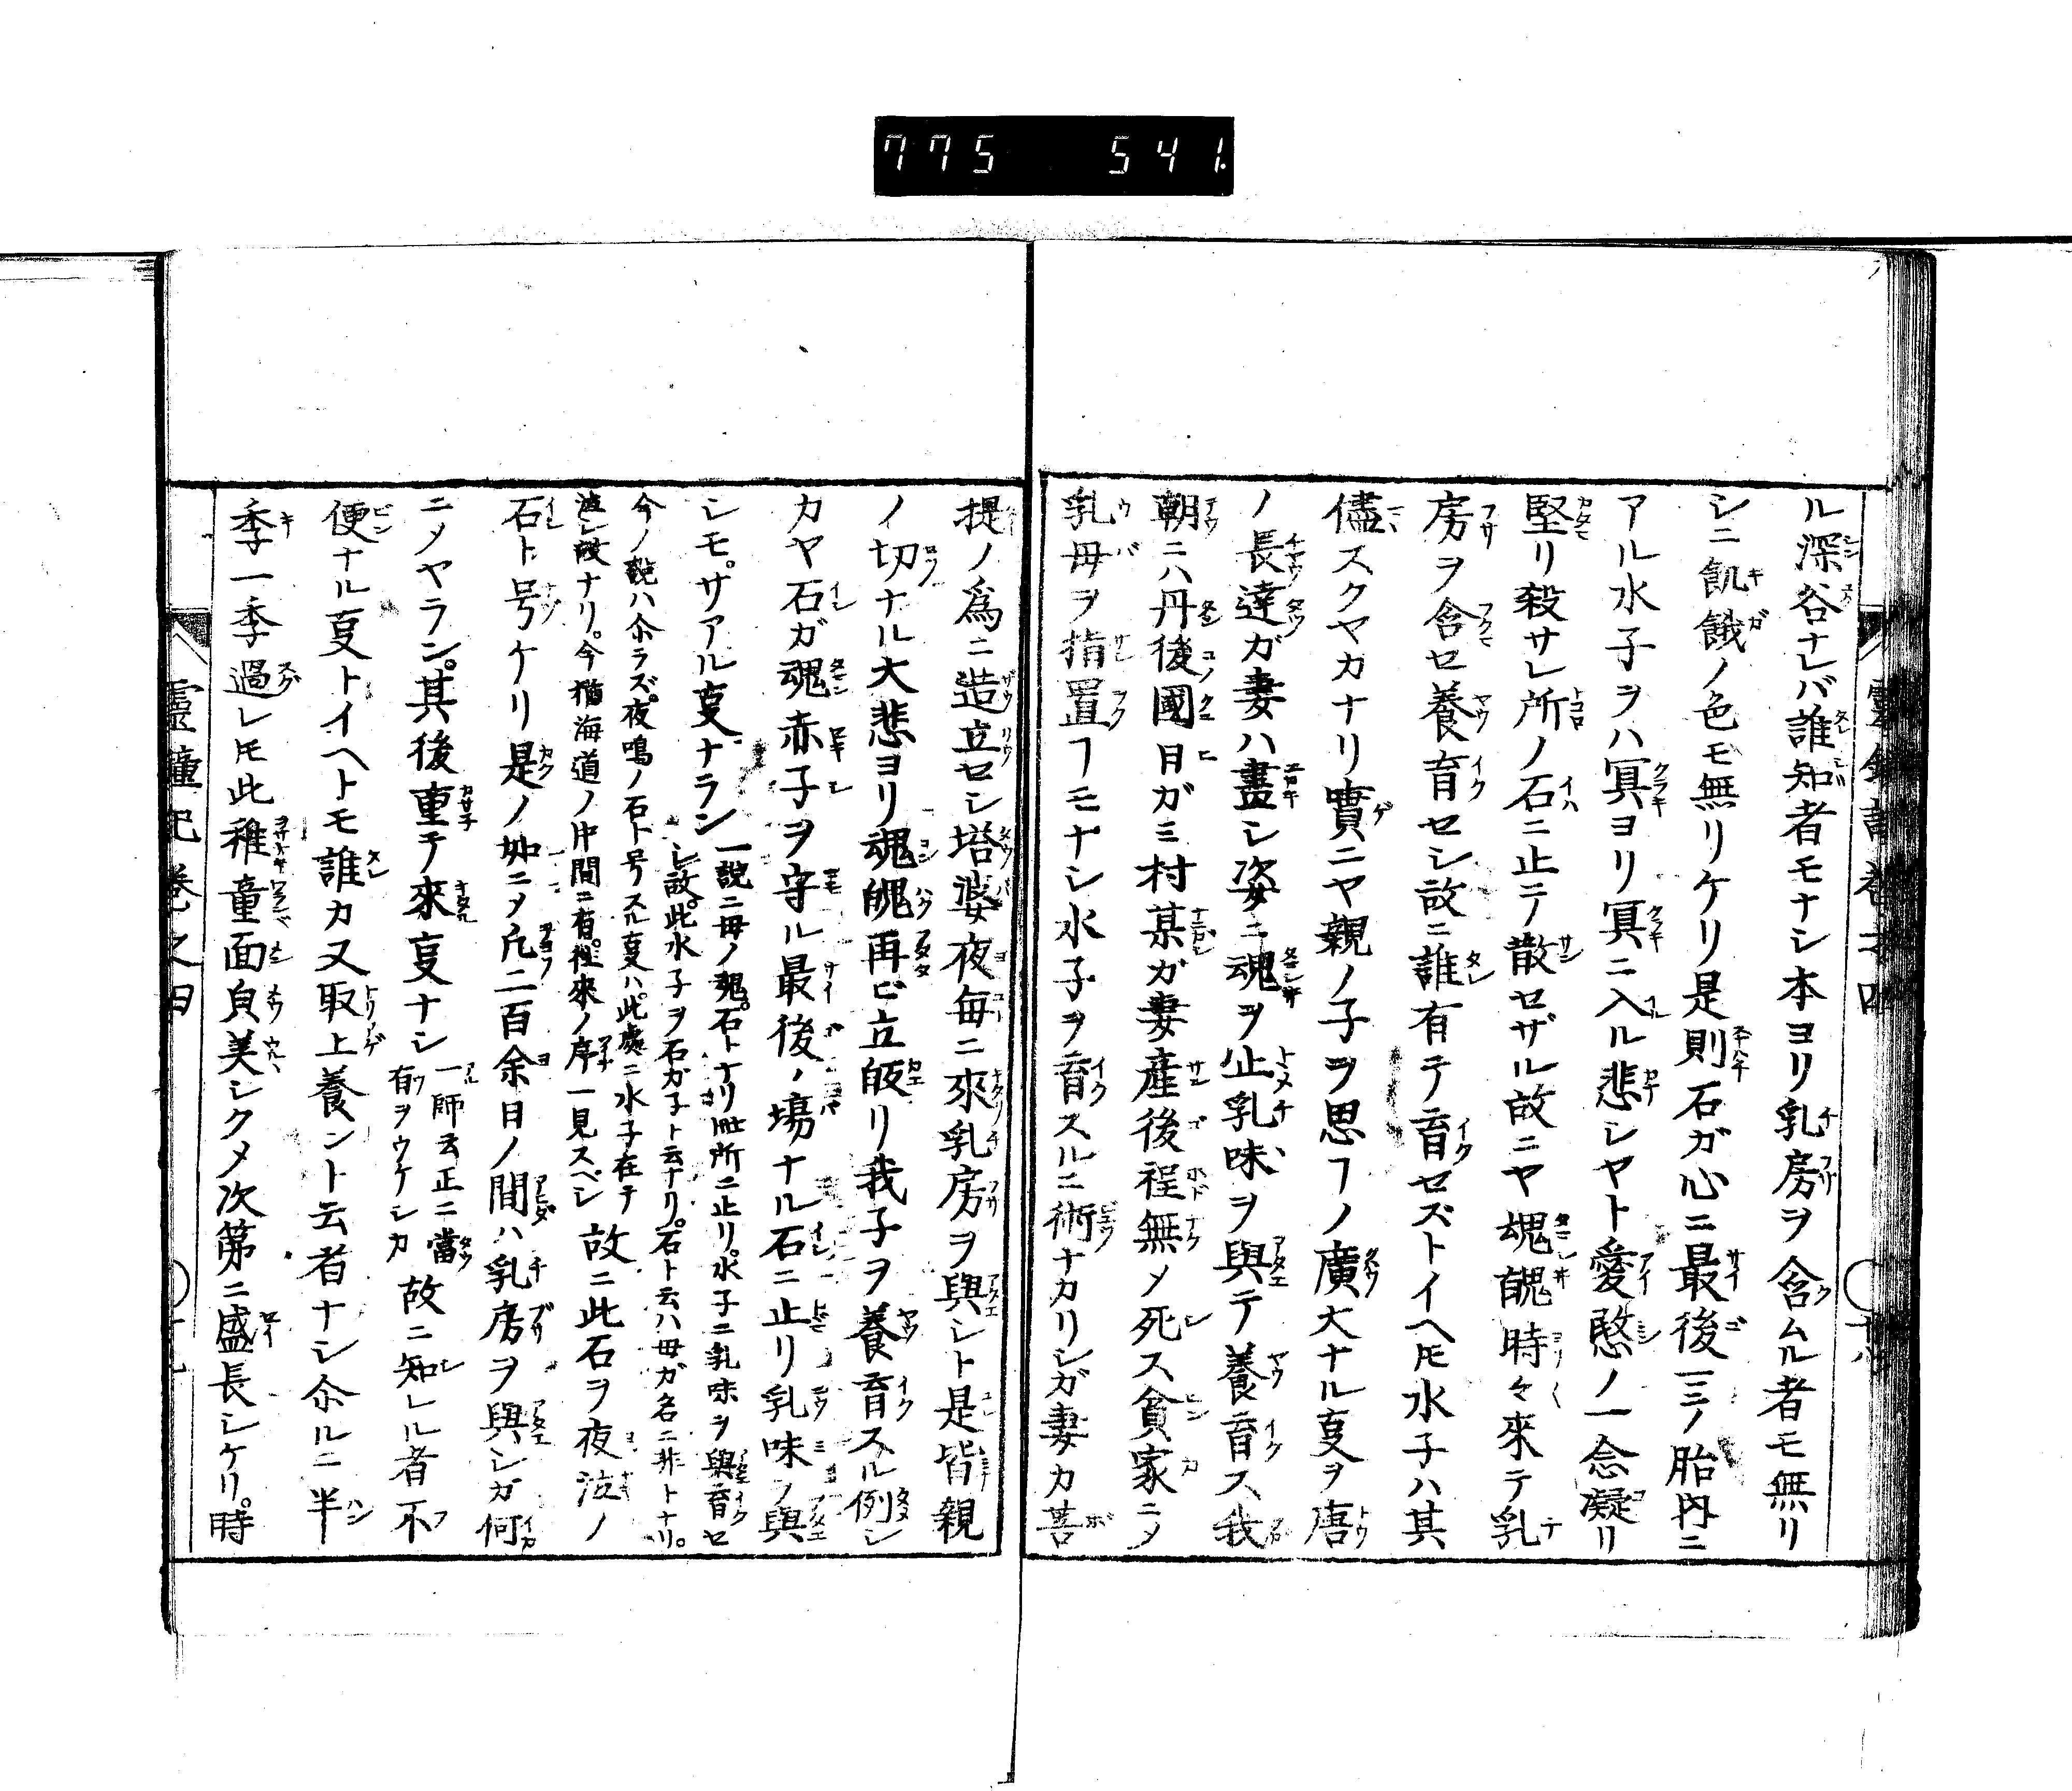 775 541
ル深谷ナレバ誰知者モナシ本ヨリ乳房ヲ含ムル者モ無リ
シニ飢餓ノ色モ無リケリ是則石ガ心ニ最後ニ三ノ胎内ニ
アル水子ヲハ冥ヨリ冥ニ入ル悲シヤト愛愍ノ一念凝リ
堅リ殺サレ所ノ石ニ止テ散セザル故ニヤ魂魄時々來テ乳
房ヲ含セ養育セシ故ニ誰有テ育セズトイヘ𪜈水子ハ其
儘スクヤカナリ實ニヤ親ノ子ヲ思フノ廣大ナル㕝ヲ唐
ノ長達ガ妻ハ畫シ姿ニ魂ヲ止乳味ヲ與テ養育ス我
朝ニハ丹後國日ガミ村某ガ妻産後程無メ死ス貧家ニメ
乳母ヲ指置フモナシ水子ヲ育スルニ術ナカリシガ妻カ菩
提ノ爲ニ造立セシ塔婆夜毎ニ來乳房ヲ與シト是皆親
ノ切ナル大悲ヨリ魂魄再ビ立皈リ我子ヲ養育スル例シ
カヤ石ガ魂赤子ヲ守ル最後ノ塲ナル石ニ止リ乳味ヲ與
シモ。サアル㕝ナラン
一説ニ母ノ魂。石トナリ此所ニ止リ。水子ニ乳味ヲ與育セ
シ故。此水子ヲ石ガ子ト云ナリ。石ト云ハ母ガ名ニ非トナリ。
今ノ説ハ尒ラズ。夜鳴ノ石ト号スル㕝ハ。此處ニ水子在テ
泣シ故ナリ。今猶海道ノ中間ニ有。往來ノ序一見スベシ
故ニ此石ヲ夜泣ノ
石ト号ケリ是ノ如ニメ凡二百余日ノ間ハ乳房ヲ與シガ何
ニメヤラン。其後重テ來㕝ナシ
一師云正ニ當
有ヲウケシカ
故ニ知レル者不
便ナル㕝トイヘトモ誰カ又取上養ント云者ナシ尒ルニ半
季一季過レ𪜈此稚童面皃美シクメ次第ニ盛長シケリ。時